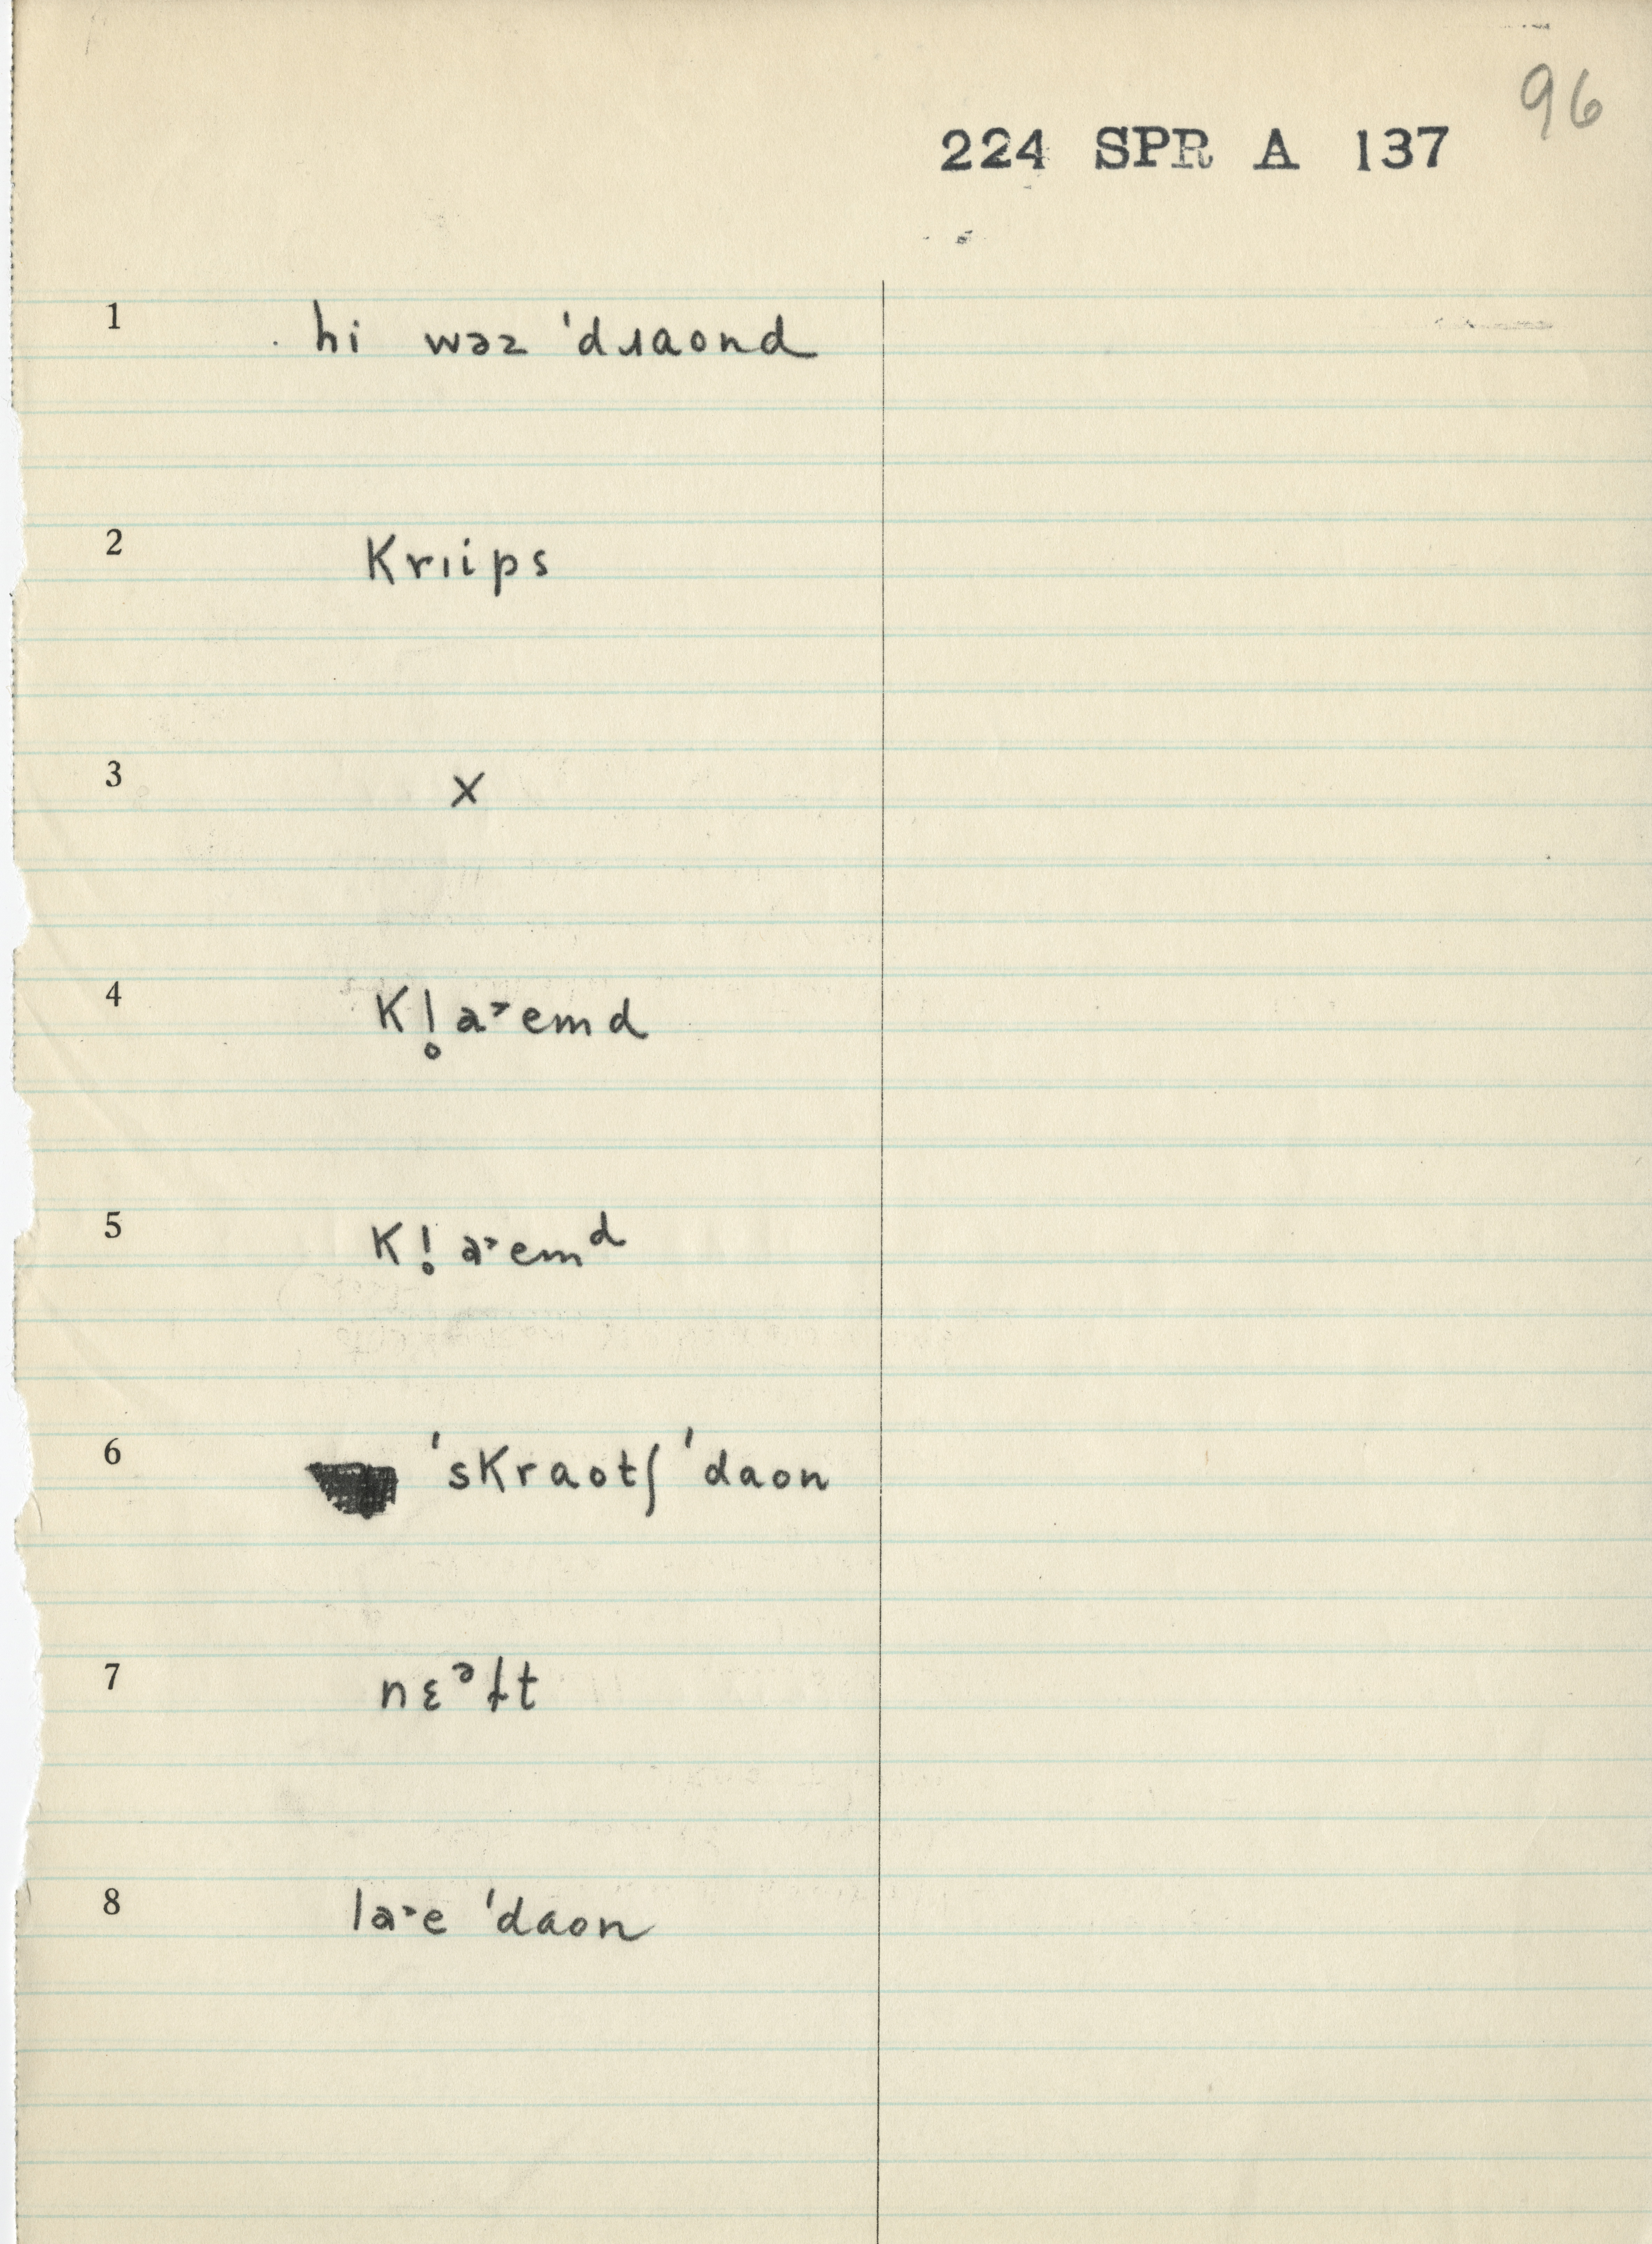 96
224 SPR A 137
1 hi wəz ˈdɹaond
2 krɪips
3 x
4 kl̥a˃emd
5 kl̥a˃emᵈ
6 ˈskraotʃ ˈdaon
7 nɛᵊɫt
8 la˃e ˈdaon